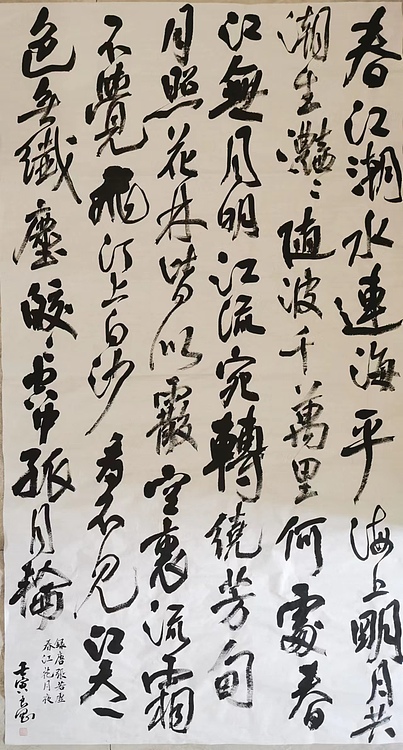 春江潮水連海平海上明月共
潮生灩〻隨波千萬里何處春
江無月明江流宛轉繞芳甸
月照花林皆似霰空裏流霜
不覺飛汀上白沙看不見江天一
色无纖塵皎〻空中孤月輪
録唐張若虛
春江花月夜
壬寅